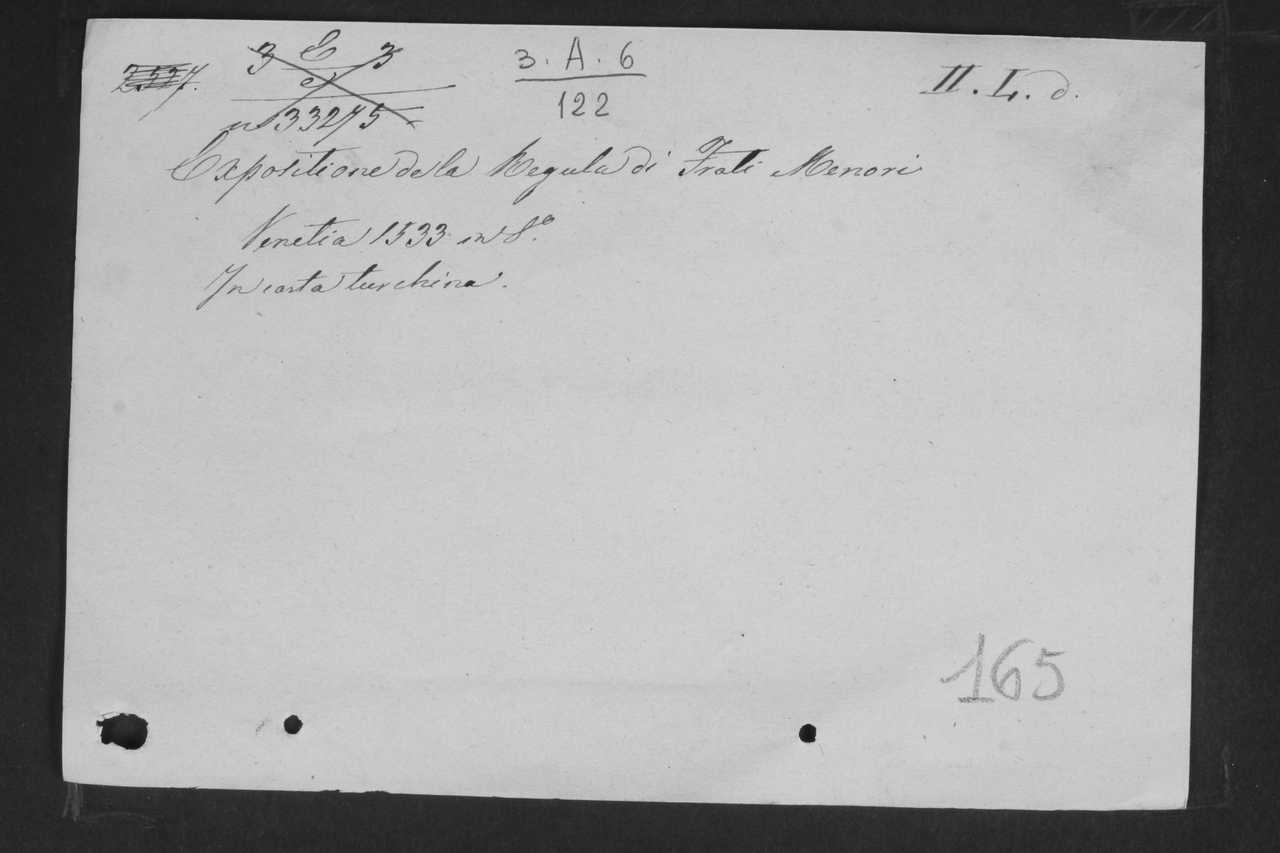 3 E 3
3. A. 6
122
II. L. d.
n 33275
Expositione de la Regula di Frati Menori
Venetia 1533 in 8.°
In carta turchina.
165